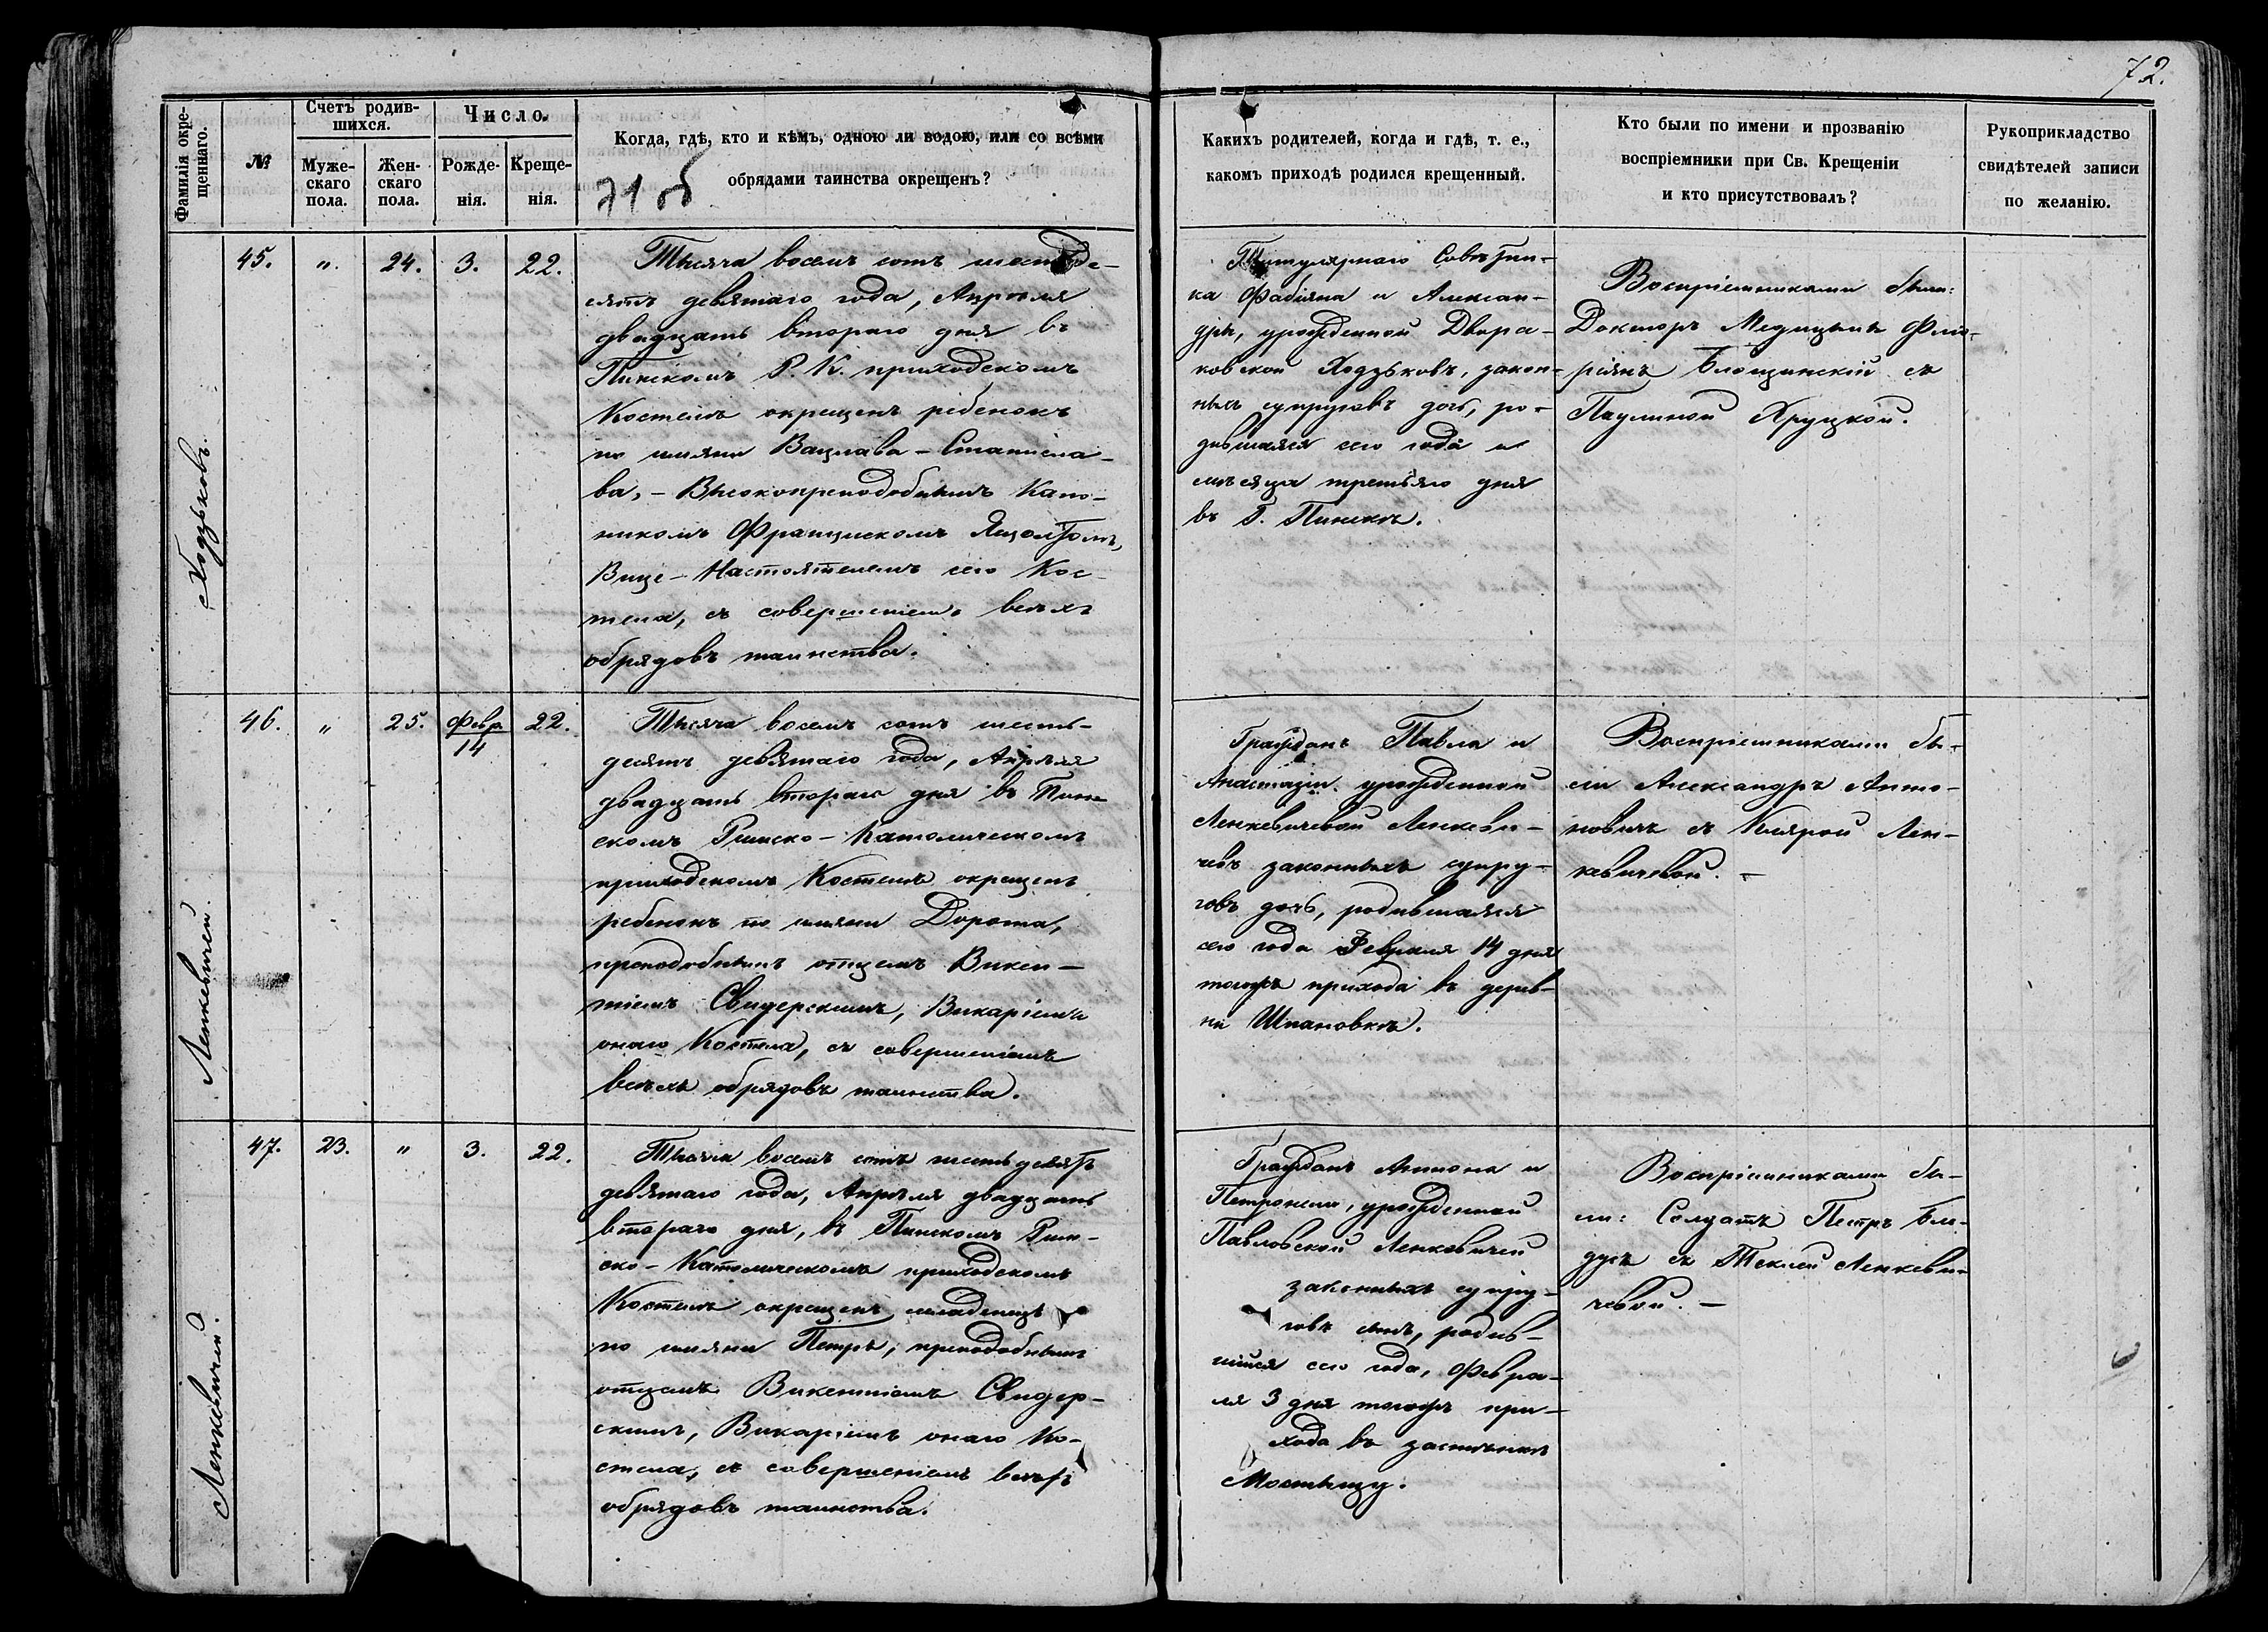 72.
Фамилія окре-
щеннаго.
№
Счетъ родив-
шихся.
Муже-
скаго
пола.
Жен-
скаго
пола.
Число.
Рожде-
нія.
Креще-
нія.
Когда, гдѣ, кто и кѣмъ, одною ли водою, или со всѣми
обрядами таинства окрещенъ?
71 об
Какихъ родителей, когда и гдѣ, т. е.,
какомъ приходѣ родился крещенный.
Кто были по имени и прозванію
воспріемники при Св. Крещеніи
и кто присутствовалъ?
Рукоприкладство
свидѣтелей записи
по желанію.
Ходзьковъ.
45.
„
24.
3.
22.
Тысяча восемь сотъ шестьде-
сятъ девятаго года, Апрѣля
двадцать втораго дня въ
Пинскомъ Р. К. приходскомъ
Костелѣ окрещенъ ребенокъ
по имяни Вацлава-Станисла-
ва, - Высокопреподобнымъ Кано-
никомъ Францискомъ
Вице-Настоятелемъ сего Кос-
тела, съ совершеніемъ всѣхъ
обрядовъ таинства.
Титулярнаго Совѣтни-
ка Фабіяна и Алексан-
дры, урожденной Двора-
ковской Ходзьковъ, закон-
ныхъ супруговъ дочь, ро-
дившаяся сего года и
мѣсяца третьяго дня
въ Г. Пинскѣ.
Воспріемниками были:
Докторъ Медицины Фло-
ріянъ Блощинскій съ
Паулиной Хруцкой.
Ленкевичей.
46.
„
25.
Февр.
14
22.
Тысяча восемь сотъ шесть-
десятъ девятаго года, Апрѣля
двадцать втораго дня въ Пин-
скомъ Римско-Католическомъ
приходскомъ Костелѣ окрещенъ
ребенокъ по имяни Дорота,
преподобнымъ отцемъ Викен-
тіемъ Свидерскимъ, Викаріемъ
онаго Костела, съ совершеніемъ
всѣхъ обрядовъ таинства.
Гражданъ Павла и
Анастазіи урожденной
Ленкевичевой Ленкеви-
чевъ законныхъ супру-
говъ дочь, родившаяся
сего года Февраля 14 дня
тогожъ прихода въ дерев-
ни Шпановкѣ.
Воспріемниками бы-
ли Александръ Анто-
новичъ съ Клярой Лен-
кевичевой. -
Ленкевичей.
47.
23.
„
3.
22.
Тысяча восемь сотъ шестьдесятъ
девятаго года, Апрѣля двадцать
втораго дня, въ Пинскомъ Рим-
ско-Католическомъ приходскомъ
Костелѣ окрещенъ младенецъ
по имяни Петръ, преподобнымъ
отцемъ Викентіемъ Свидер-
скимъ, Викаріемъ онаго Ко-
стела, съ совершеніемъ всѣхъ
обрядовъ таинства.
Гражданъ Антона и
Петронели, урожденной
Павловской Ленкевичей
законныхъ супру-
говъ сынъ, родив-
шійся сего года, Февра-
ля 3 дня тогожъ при-
хода въ застѣнкѣ
Мостыщу.
Воспріемниками бы-
ли: Солдатъ Петръ
съ Теклей Ленкеви-
чевой. -